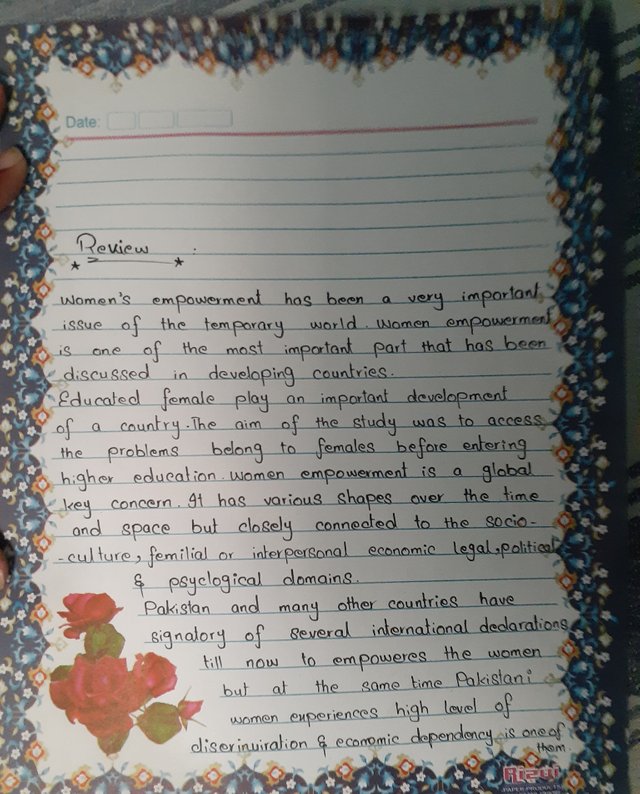 Date:
Review :
women's empowerment has been a very important
issue of the temporary world. women empowerment
is one of the most important part that has been
discussed in developing countries.
Educated female play an important development
of a country. The aim of the study was to access
the problems belong to females before entering
higher education. women empowerment is a global
key concern. It has various shapes over the time
and space but closely connected to the socio-
-culture, femilial or interpersonal economic legal, political
& psyclogical domains.
Pakistan and many other countries have
signatory of several international declarations
till now to empoweres the women
but at the same time Pakistani
women experiences high level of
diserinuiration & economic dependency is one of
them.
Rizwi
PAPER PRODUCTS